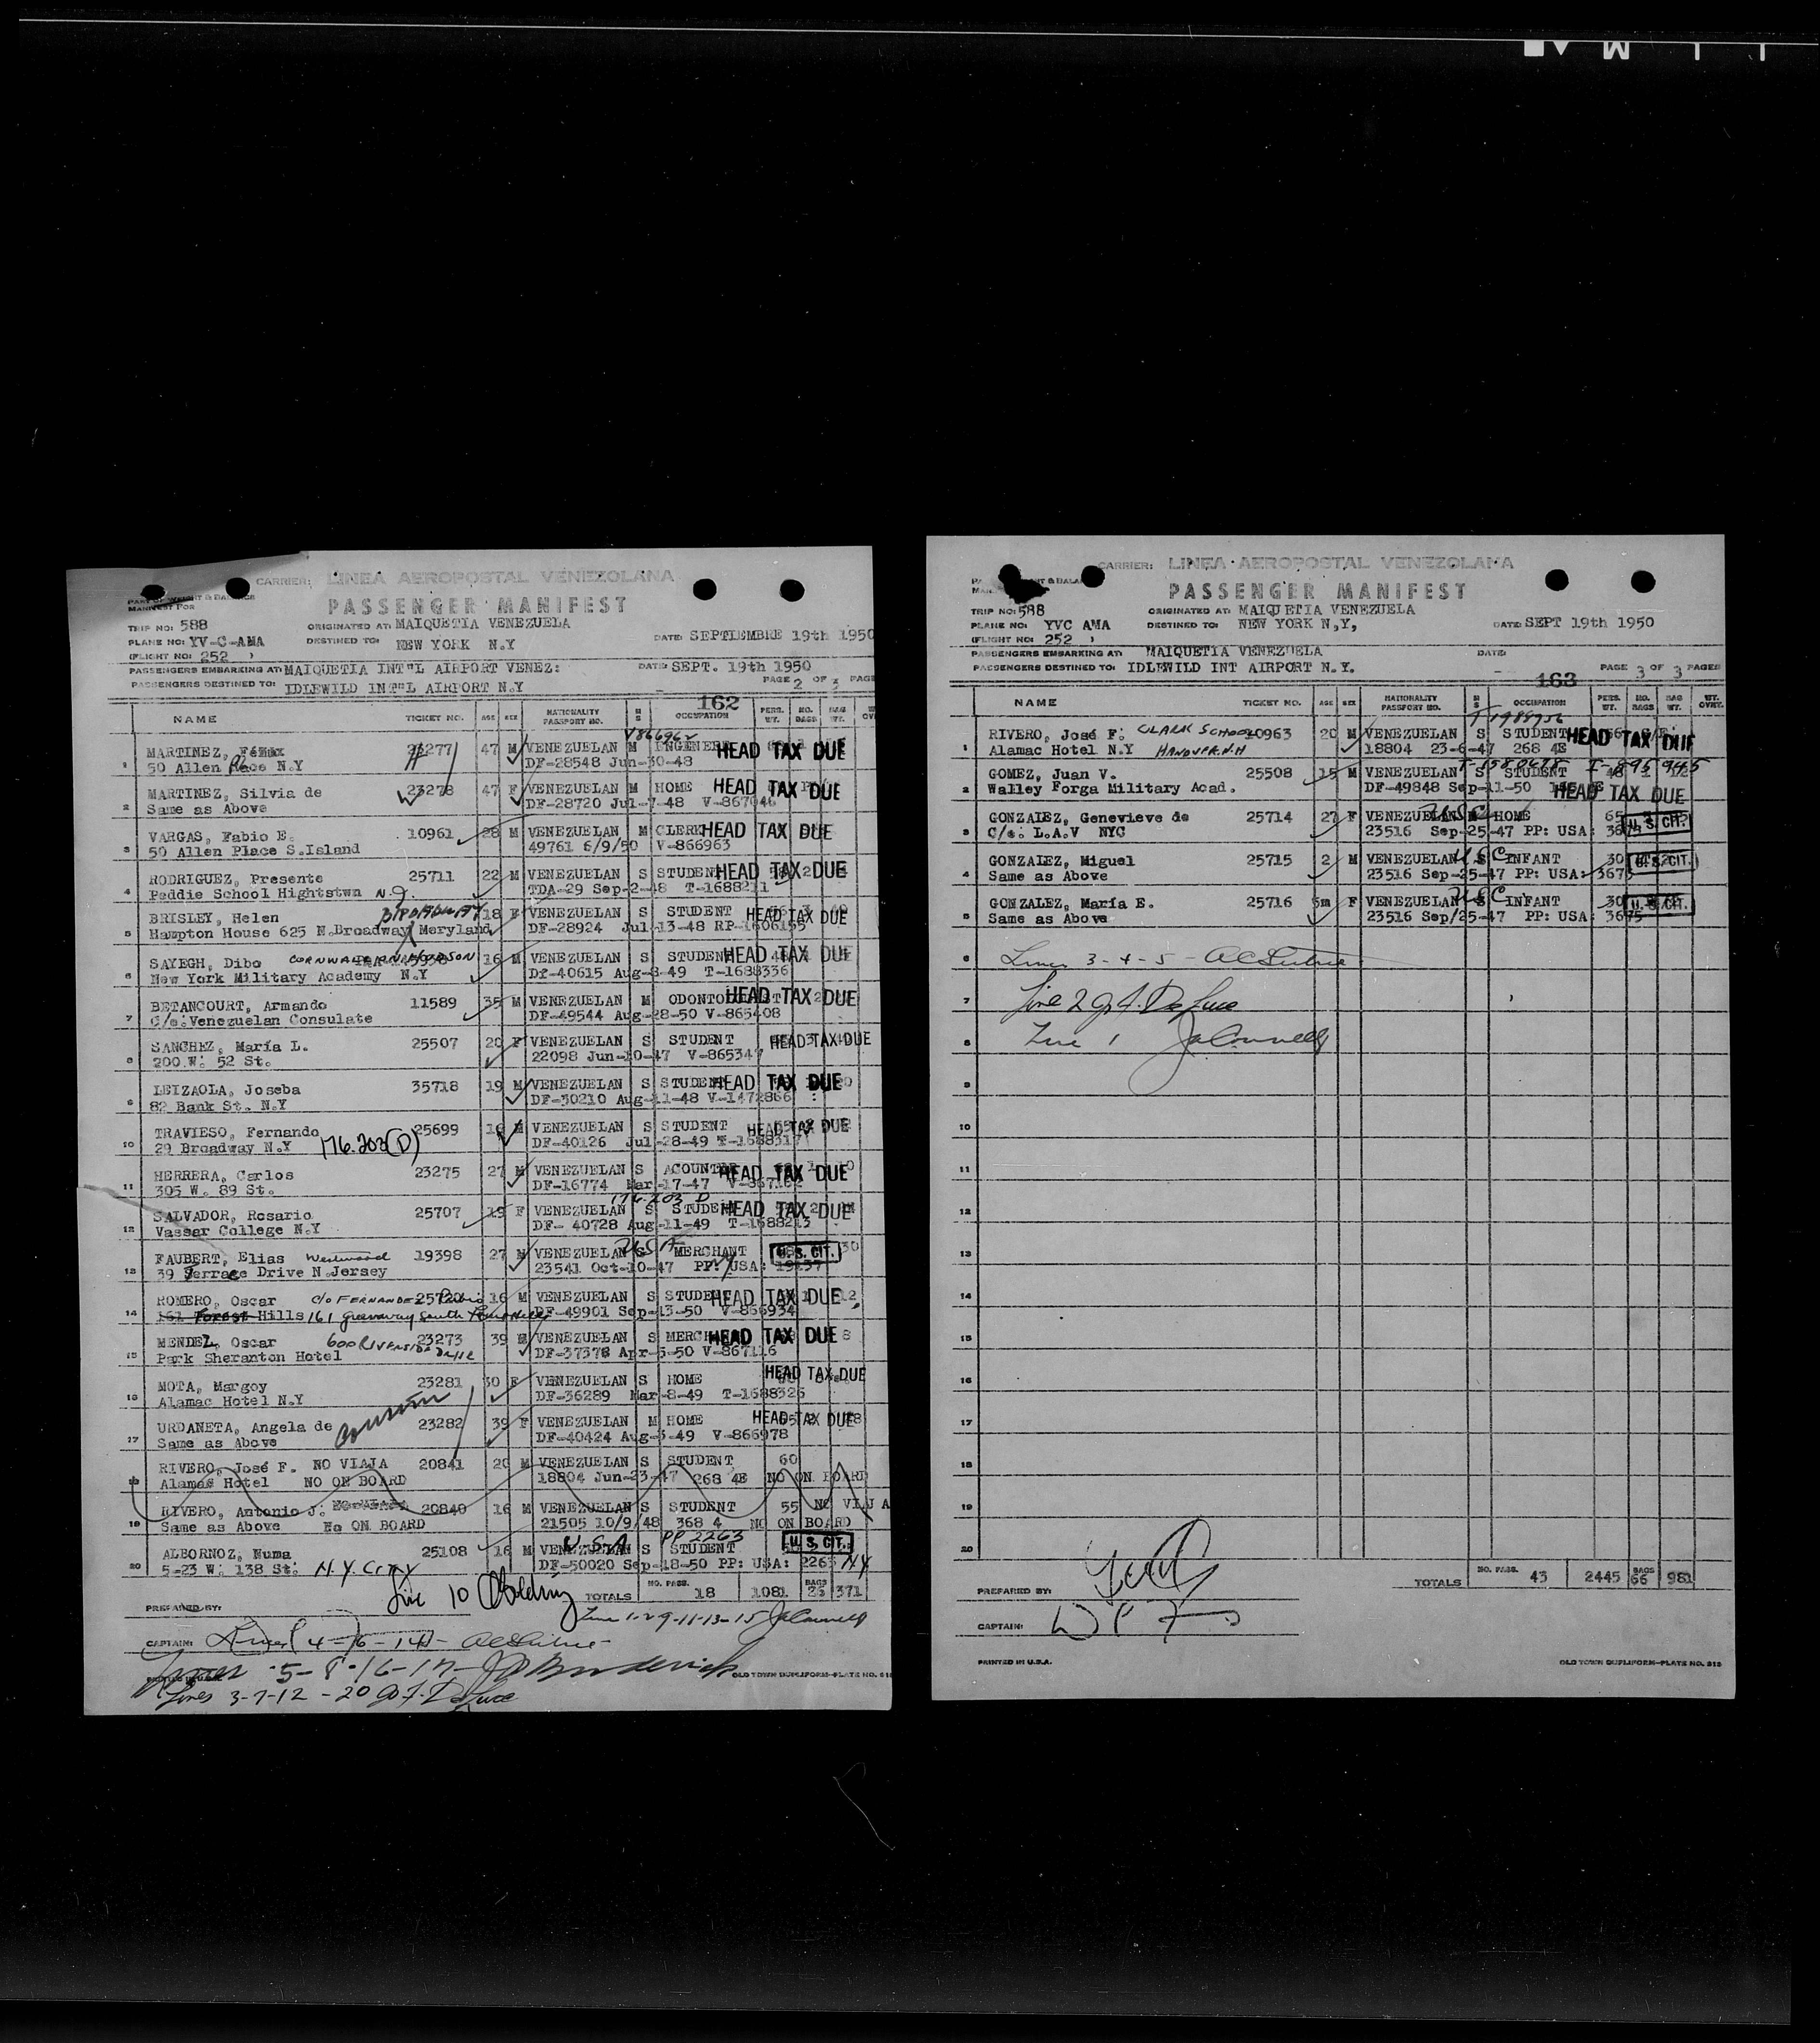 CARRIER: LINEA AEROPOSTAL VENEZOLANA
PART OF WEIGHT & BALANCE
MANIFEST FOR
PASSENGER MANIFEST
TRIP NO: 588 ORIGINATED AT: MAIQUETIA VENEZUELA
PLANE NO: YV-C-AMA DESTINED TO: NEW YORK N.Y DATE: SEPTIEMBRE 19th 1950
(FLIGHT NO: 252 )
PASSENGERS EMBARKING AT: MAIQUETIA INT"L AIRPORT VENEZ: DATE: SEPT. 19th 1950
PASSENGERS DESTINED TO: IDLEWILD INT"L AIRPORT N.Y PAGE 2 OF 3 PAGE
162
NAME TICKET NO. AGE SEX NATIONALITY PASSPORT NO. M S OCCUPATION PERS. WT. NO. BAGS BAG WT.
V866962
1 MARTINEZ, 23277 47 M VENEZUELAN M INGENERE HEAD TAX DUE
50 Allen N.Y DF-28548 Jun-30-48
2 MARTINEZ, Silvia de 23278 47 F VENEZUELAN M HOME HEAD TAX DUE
Same as Above DF-28720 Jul-7-48 V-867046
3 VARGAS, Fabio E. 10961 28 M VENEZUELAN M CLERK HEAD TAX DUE
50 Allen Place S.Island 49761 6/9/50 V-866963
4 RODRIGUEZ, Presente 25711 22 M VENEZUELAN S STUDENT HEAD TAX DUE
Peddie School Hightstwn N.J. TDA-29 Sep-2-48 T-1688211
5 BRISLEY, Helen 18 F VENEZUELAN S STUDENT HEAD TAX DUE
Hampton House 625 N.Broadway Meryland DF-28924 Jul-13-48 RP-1606155
6 SAYEGH, Dibo CORNWALL ON HUDSON 16 M VENEZUELAN S STUDENT HEAD TAX DUE
New York Military Academy N.Y DF-40615 Aug-8-49 T-1688336
7 BETANCOURT, Armando 11589 35 M VENEZUELAN M HEAD TAX DUE
C/o: Venezuelan Consulate DF-49544 Aug-28-50 V-865408
8 SANCHEZ, María L. 25507 20 F VENEZUELAN S STUDENT HEAD TAX DUE
200 W: 52 St. 22098 Jun-10-47 V-865347
9 LEIZAOLA, Joseba 35718 19 M VENEZUELAN S STUDENT HEAD TAX DUE
82 Bank St. N.Y DF-30210 Aug-11-48 V-1472866
10 TRAVIESO, Fernando 25699 16 M VENEZUELAN S STUDENT HEAD TAX DUE
29 Broadway N.Y 176.203(D) DF-40126 Jul-28-49 T-1688317
11 HERRERA, Carlos 23275 27 M VENEZUELAN S HEAD TAX DUE
305 W. 89 St. DF-16774 Mar-17-47
176.203 D
12 SALVADOR, Rosario 25707 19 F VENEZUELAN S STUDENT HEAD TAX DUE
Vassar College N.Y DF- 40728 Aug-11-49 T-1688213
13 FAUBERT, Elias Westwood 19398 27 M VENEZUELAN S MERCHANT U.S. CIT. 30
39 Terrace Drive N.Jersey 23541 Oct-10-47 PP: USA:
14 ROMERO, Oscar c/o FERNANDEZ 25720 16 M VENEZUELAN S STUDENT HEAD TAX DUE 12
161 Forest Hills 161 Greenway South DF-49901 Sep-13-50 V-866934
15 MENDEZ, Oscar 600 RIVERSIDE DRIVE 23273 39 M VENEZUELAN S HEAD TAX DUE
Park Sheranton Hotel DF-37378 Apr-5-50 V-867116
16 MOTA, Margoy 23281 30 F VENEZUELAN S HOME HEAD TAX DUE
Alamac Hotel N.Y DF-36289 Mar-8-49 T-1688326
17 URDANETA, Angela de 23282 39 F VENEZUELAN M HOME HEAD TAX DUE
Same as Above DF-40424 Aug-3-49 V-866978
RIVERO, José F. NO VIAJA 20841 20 M VENEZUELAN S STUDENT 60
Alamac Hotel NO ON BOARD 18804 Jun-23-47 268 4E NO ON BOARD
19 RIVERO, Antonio J. 20840 16 M VENEZUELAN S STUDENT 55 NO VIAJA
Same as Above No ON BOARD 21505 10/9/48 368 4 NO ON BOARD
U.S.A PP 2263
20 ALBORNOZ, Numa 25108 16 M VENEZUELAN S STUDENT U.S. CIT.
5-23 W: 138 St: N.Y. CITY DF-50020 Sep-18-50 PP: USA: 2263 N.Y
Line 10
TOTALS NO. PASS. 18 1081 BAGS 23 371
PREPARED BY: Line 1-2-9-11-13-15
CAPTAIN: Lines (4-6-14)
Lines 5-8-16-17
Lines 3-7-12-20
OLD TOWN DUPLIFORM-PLATE NO.
CARRIER: LINEA AEROPOSTAL VENEZOLANA
PASSENGER MANIFEST
TRIP NO: 588 ORIGINATED AT: MAIQUETIA VENEZUELA
PLANE NO: YVC AMA DESTINED TO: NEW YORK N,Y, DATE: SEPT 19th 1950
(FLIGHT NO: 252 )
PASSENGERS EMBARKING AT: MAIQUETIA VENEZUELA DATE:
PASSENGERS DESTINED TO: IDLEWILD INT AIRPORT N.Y. PAGE 3 OF 3 PAGES
163
NAME TICKET NO. AGE SEX NATIONALITY PASSPORT NO. M S OCCUPATION PERS. WT. NO. BAGS BAG WT. WT. OVRT.
T 1988956
1 RIVERO, José F: CLARK SCHOOL 20963 20 M VENEZUELAN S STUDENT HEAD TAX DUE
Alamac Hotel N.Y HANOVER.N.H 18804 23-6-47 268 4E
2 GOMEZ, Juan V. 25508 15 M VENEZUELAN S STUDENT
Walley Forga Military Acad. DF-49848 Sep-11-50 HEAD TAX DUE
3 GONZALEZ, Genevieve de 25714 27 F VENEZUELAN USC HOME 65 U.S. CIT.
C/o: L.A.V NYC 23516 Sep-25-47 PP: USA: 3675
4 GONZALEZ, Miguel 25715 2 M VENEZUELAN USC INFANT 30 U.S. CIT.
Same as Above 23516 Sep-25-47 PP: USA: 3675
5 GONZALEZ, María E. 25716 5m F VENEZUELAN USC INFANT 30 U.S. CIT.
Same as Above 23516 Sep/25-47 PP: USA: 3675
6 Lines 3-4-5
7 Line 2
8 Line 1
9
10
11
12
13
14
15
16
17
18
19
20
TOTALS NO. PASS. 43 2445 BAGS 66 981
PREPARED BY:
CAPTAIN:
PRINTED IN U.S.A. OLD TOWN DUPLIFORM-PLATE NO. 515